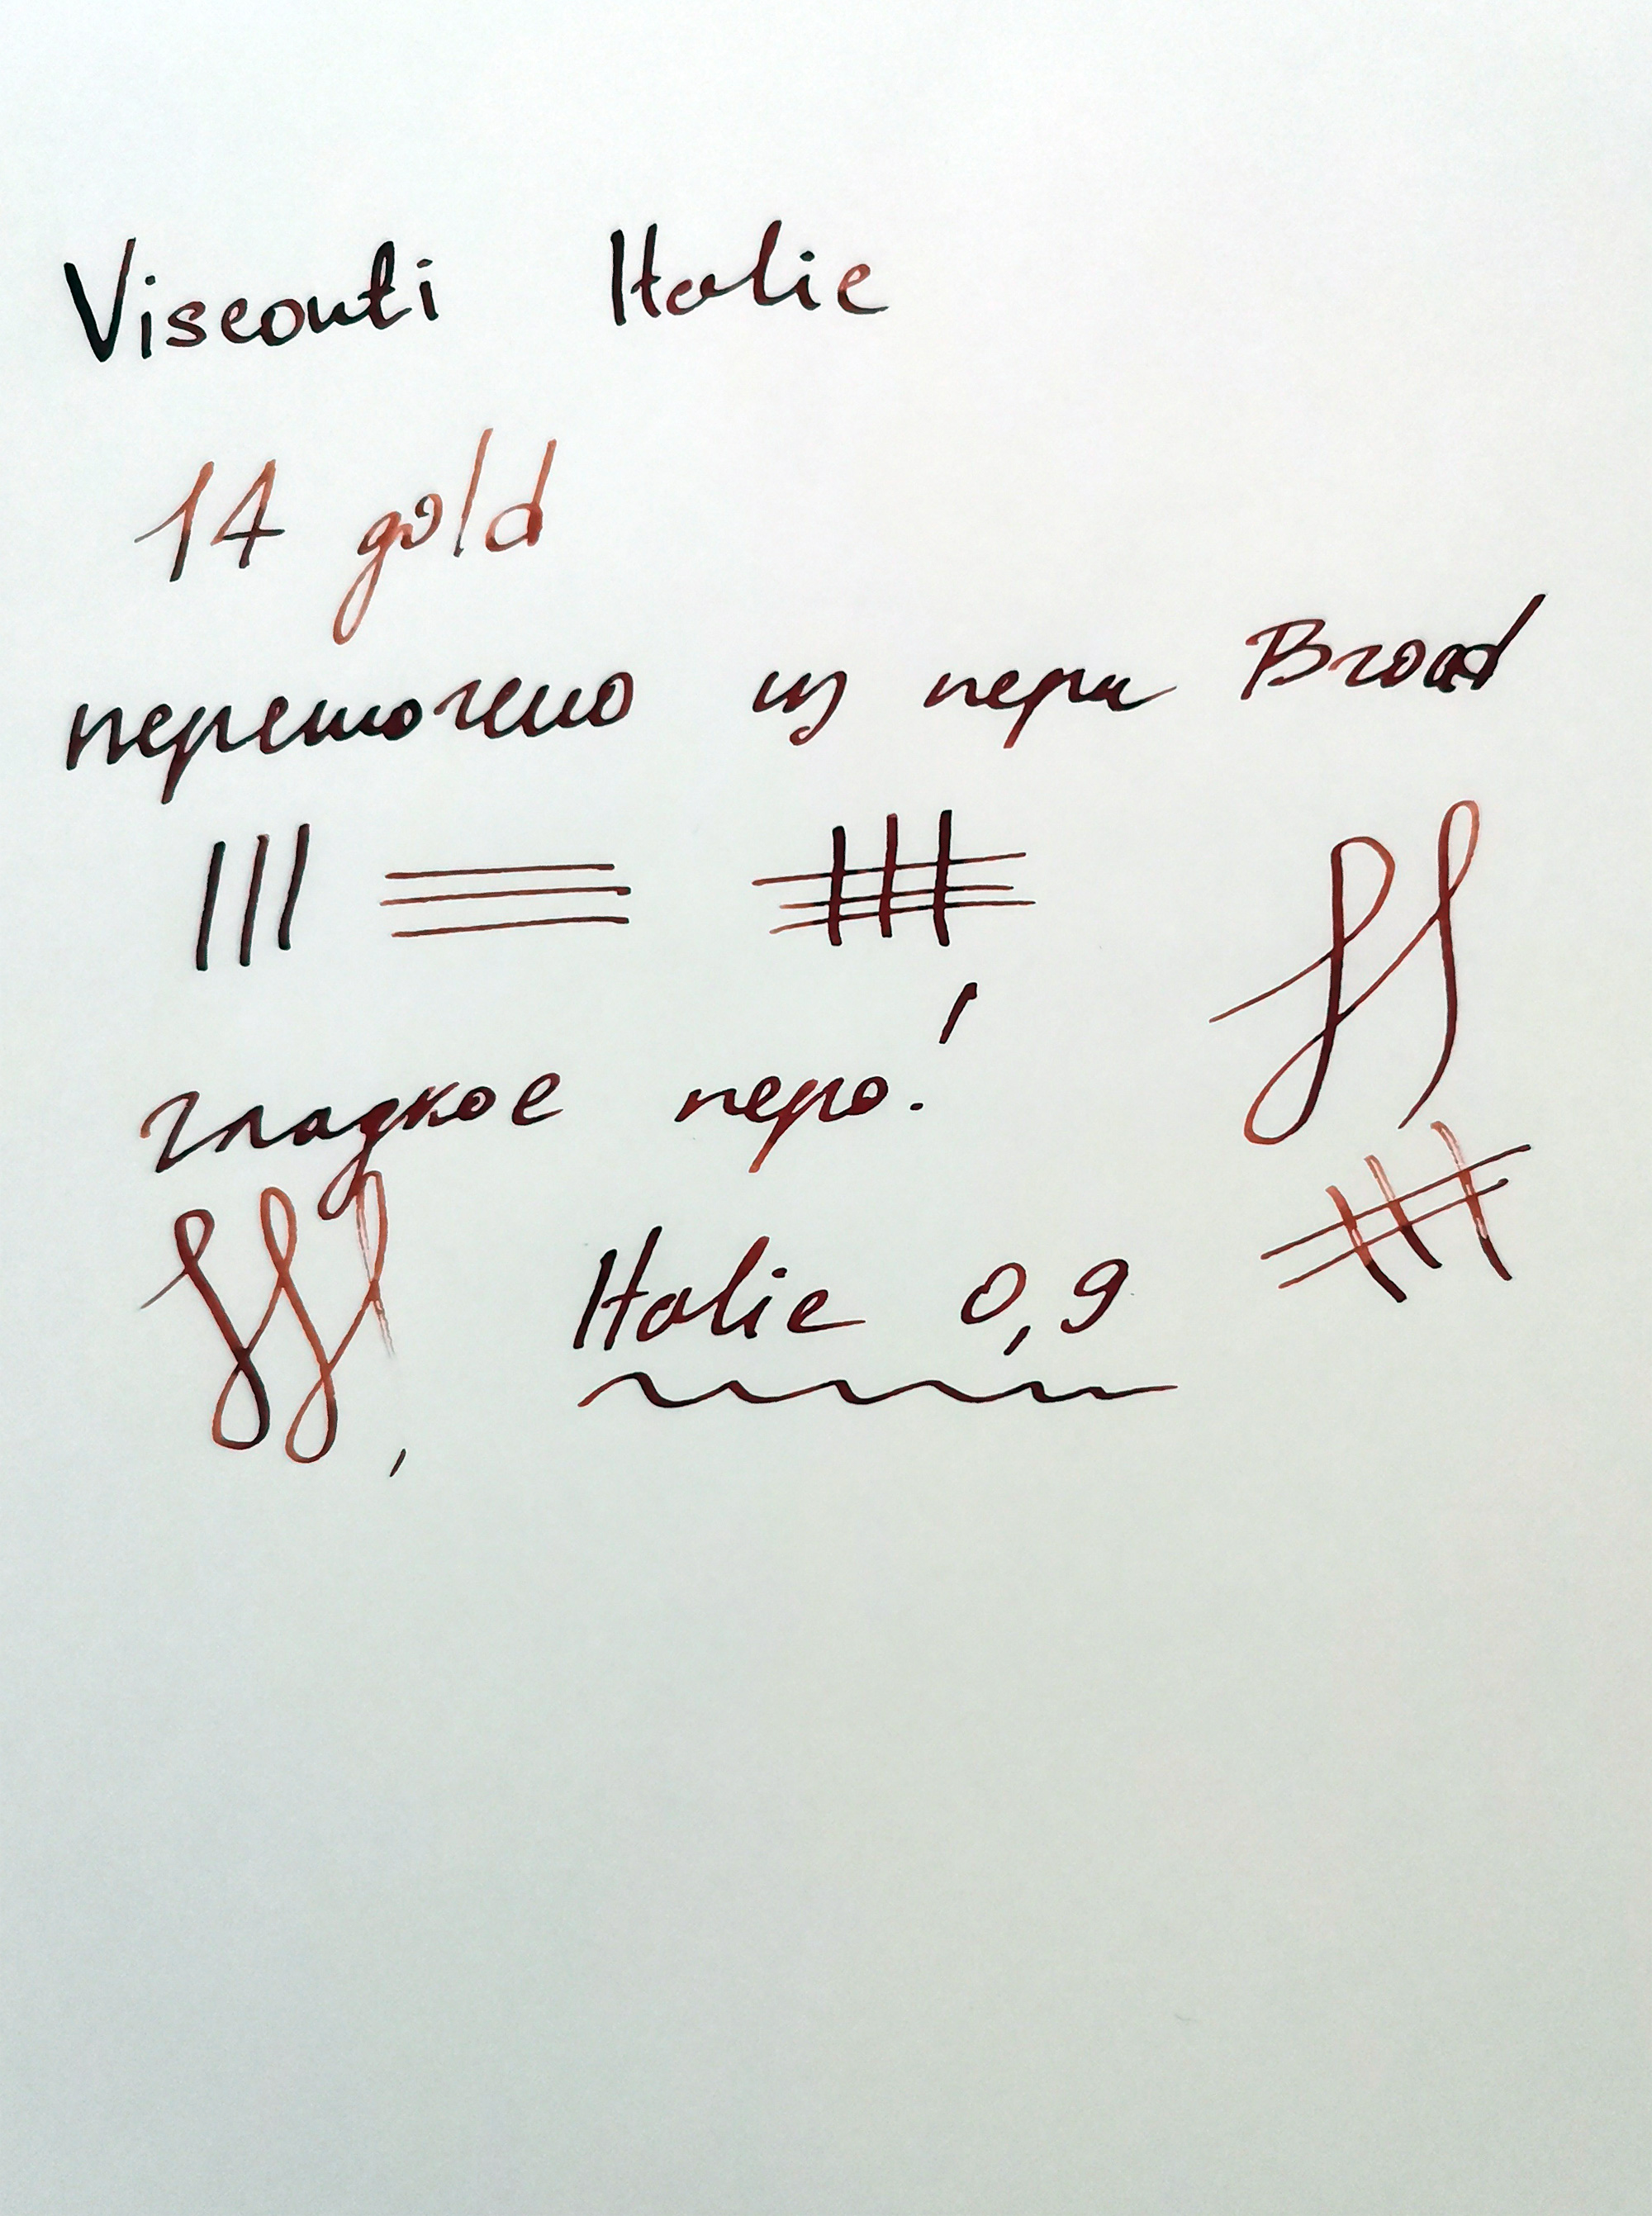 Visconti Italic
14 gold
переточено из пера Broad
гладкое перо!
Italic 0,9